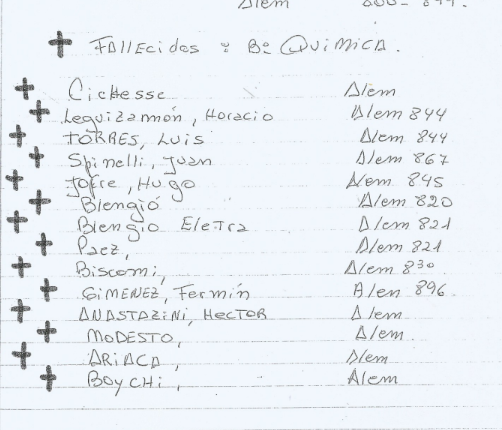 Alem 800-844.
✝ FAllEcidos : Bº QUiMiCA.
✝ CicHesse Alem
✝ Leguizamón, Horacio Alem 844
✝ TORRES, LUIS Alem 844
✝ Spinelli, Juan Alem 867
✝ Jofre, Hugo Alem 845
✝ Blengió Alem 820
✝ Blengio EleTra Alem 821
✝ Paez, Alem 821
✝ Biscomi, Alem 830
✝ GiMENEZ, Fermín Alem 896
✝ ANASTAZiNi, HecTOR Alem
✝ MODESTO, Alem
✝ ARIACA, Alem
✝ BOYCHi, Alem